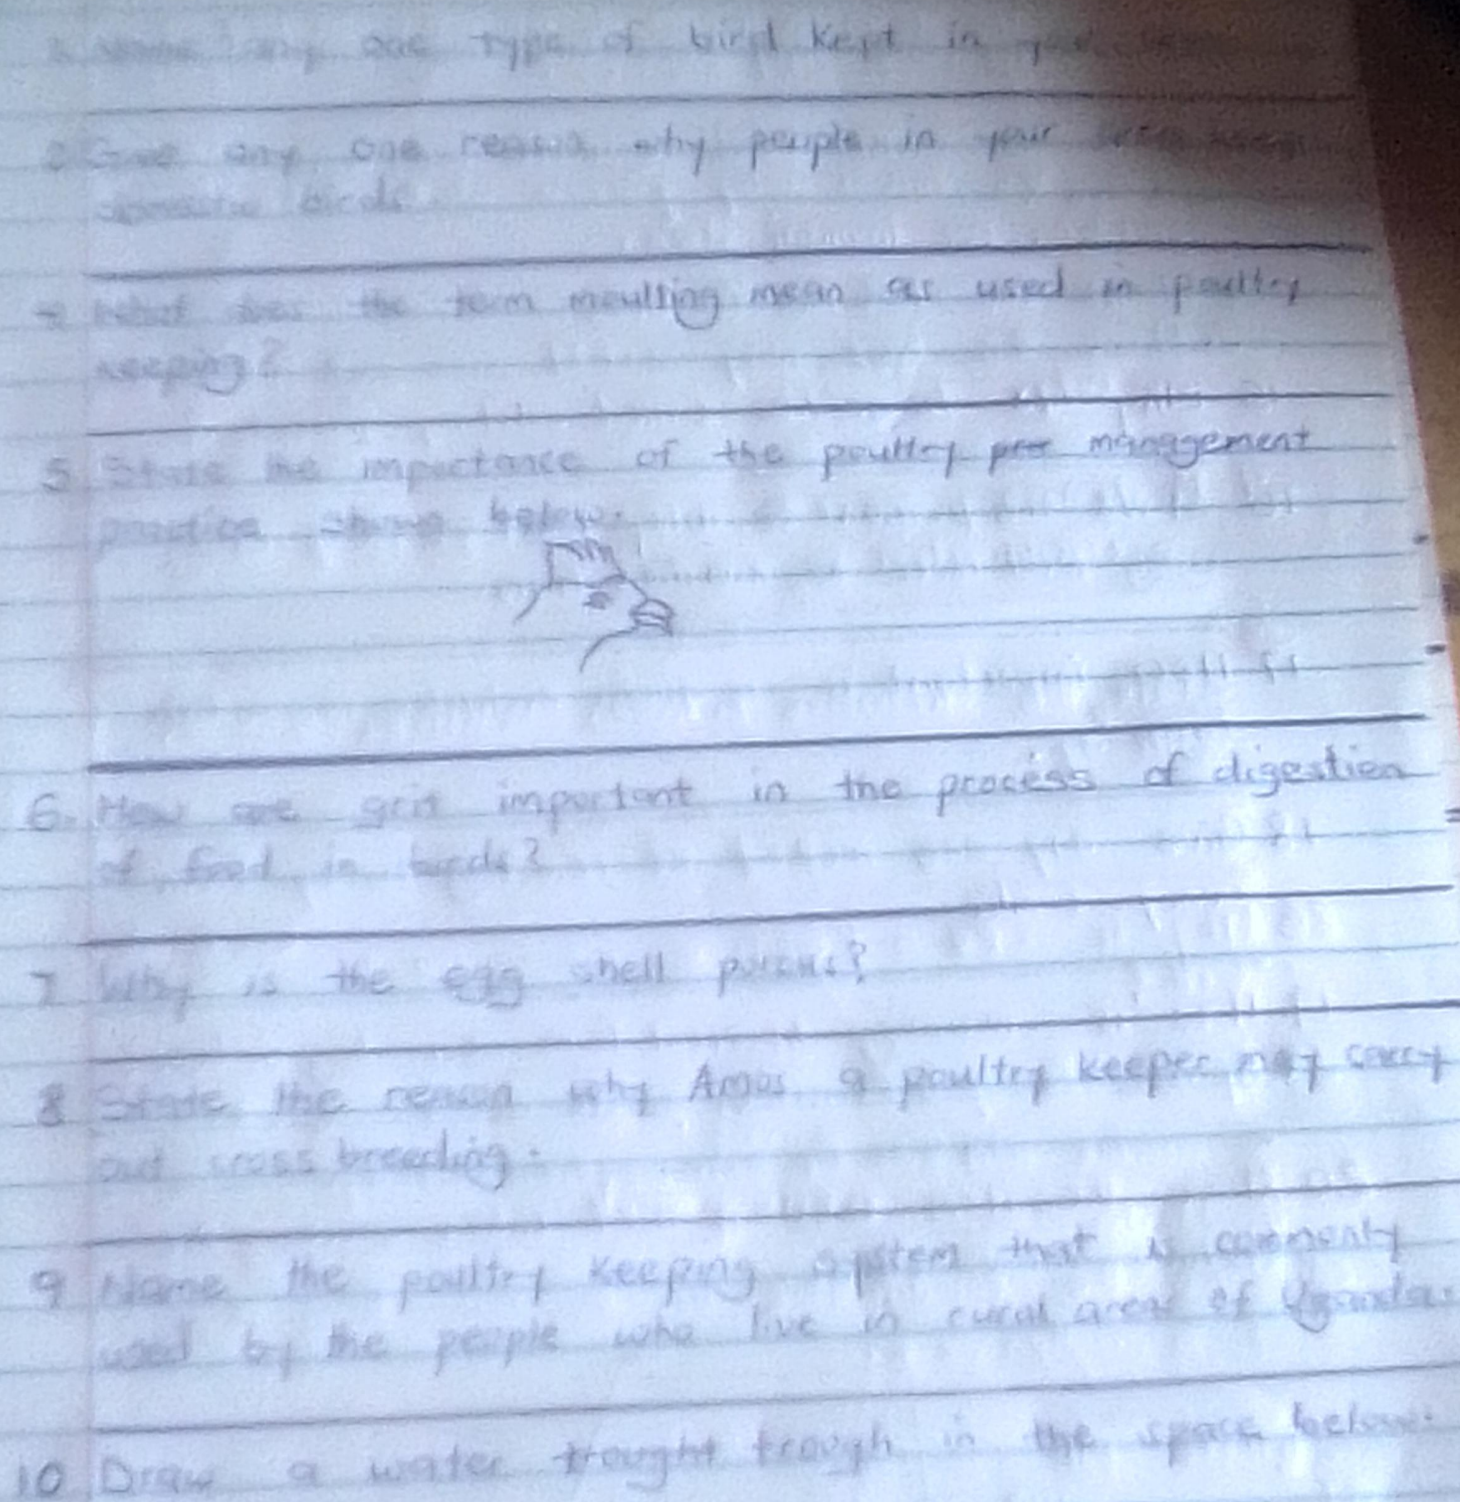 Name any one type of bird kept in your
3 Give any one reason why people in your
domestic birds.
4 What does the term moulting mean as used in poultry
keeping?
5 State the importance of the poultry pra management
practice shown below.
6. How are grit important in the process of digestion
of food in birds?
7 Why is the egg shell porous?
8 State the reason why Amos a poultry keeper may carry
out cross breeding.
9 Name the poultry keeping system that is commonly
used by the people who live in rural areas of Uganda.
10 Draw a water trought trough in the space below.